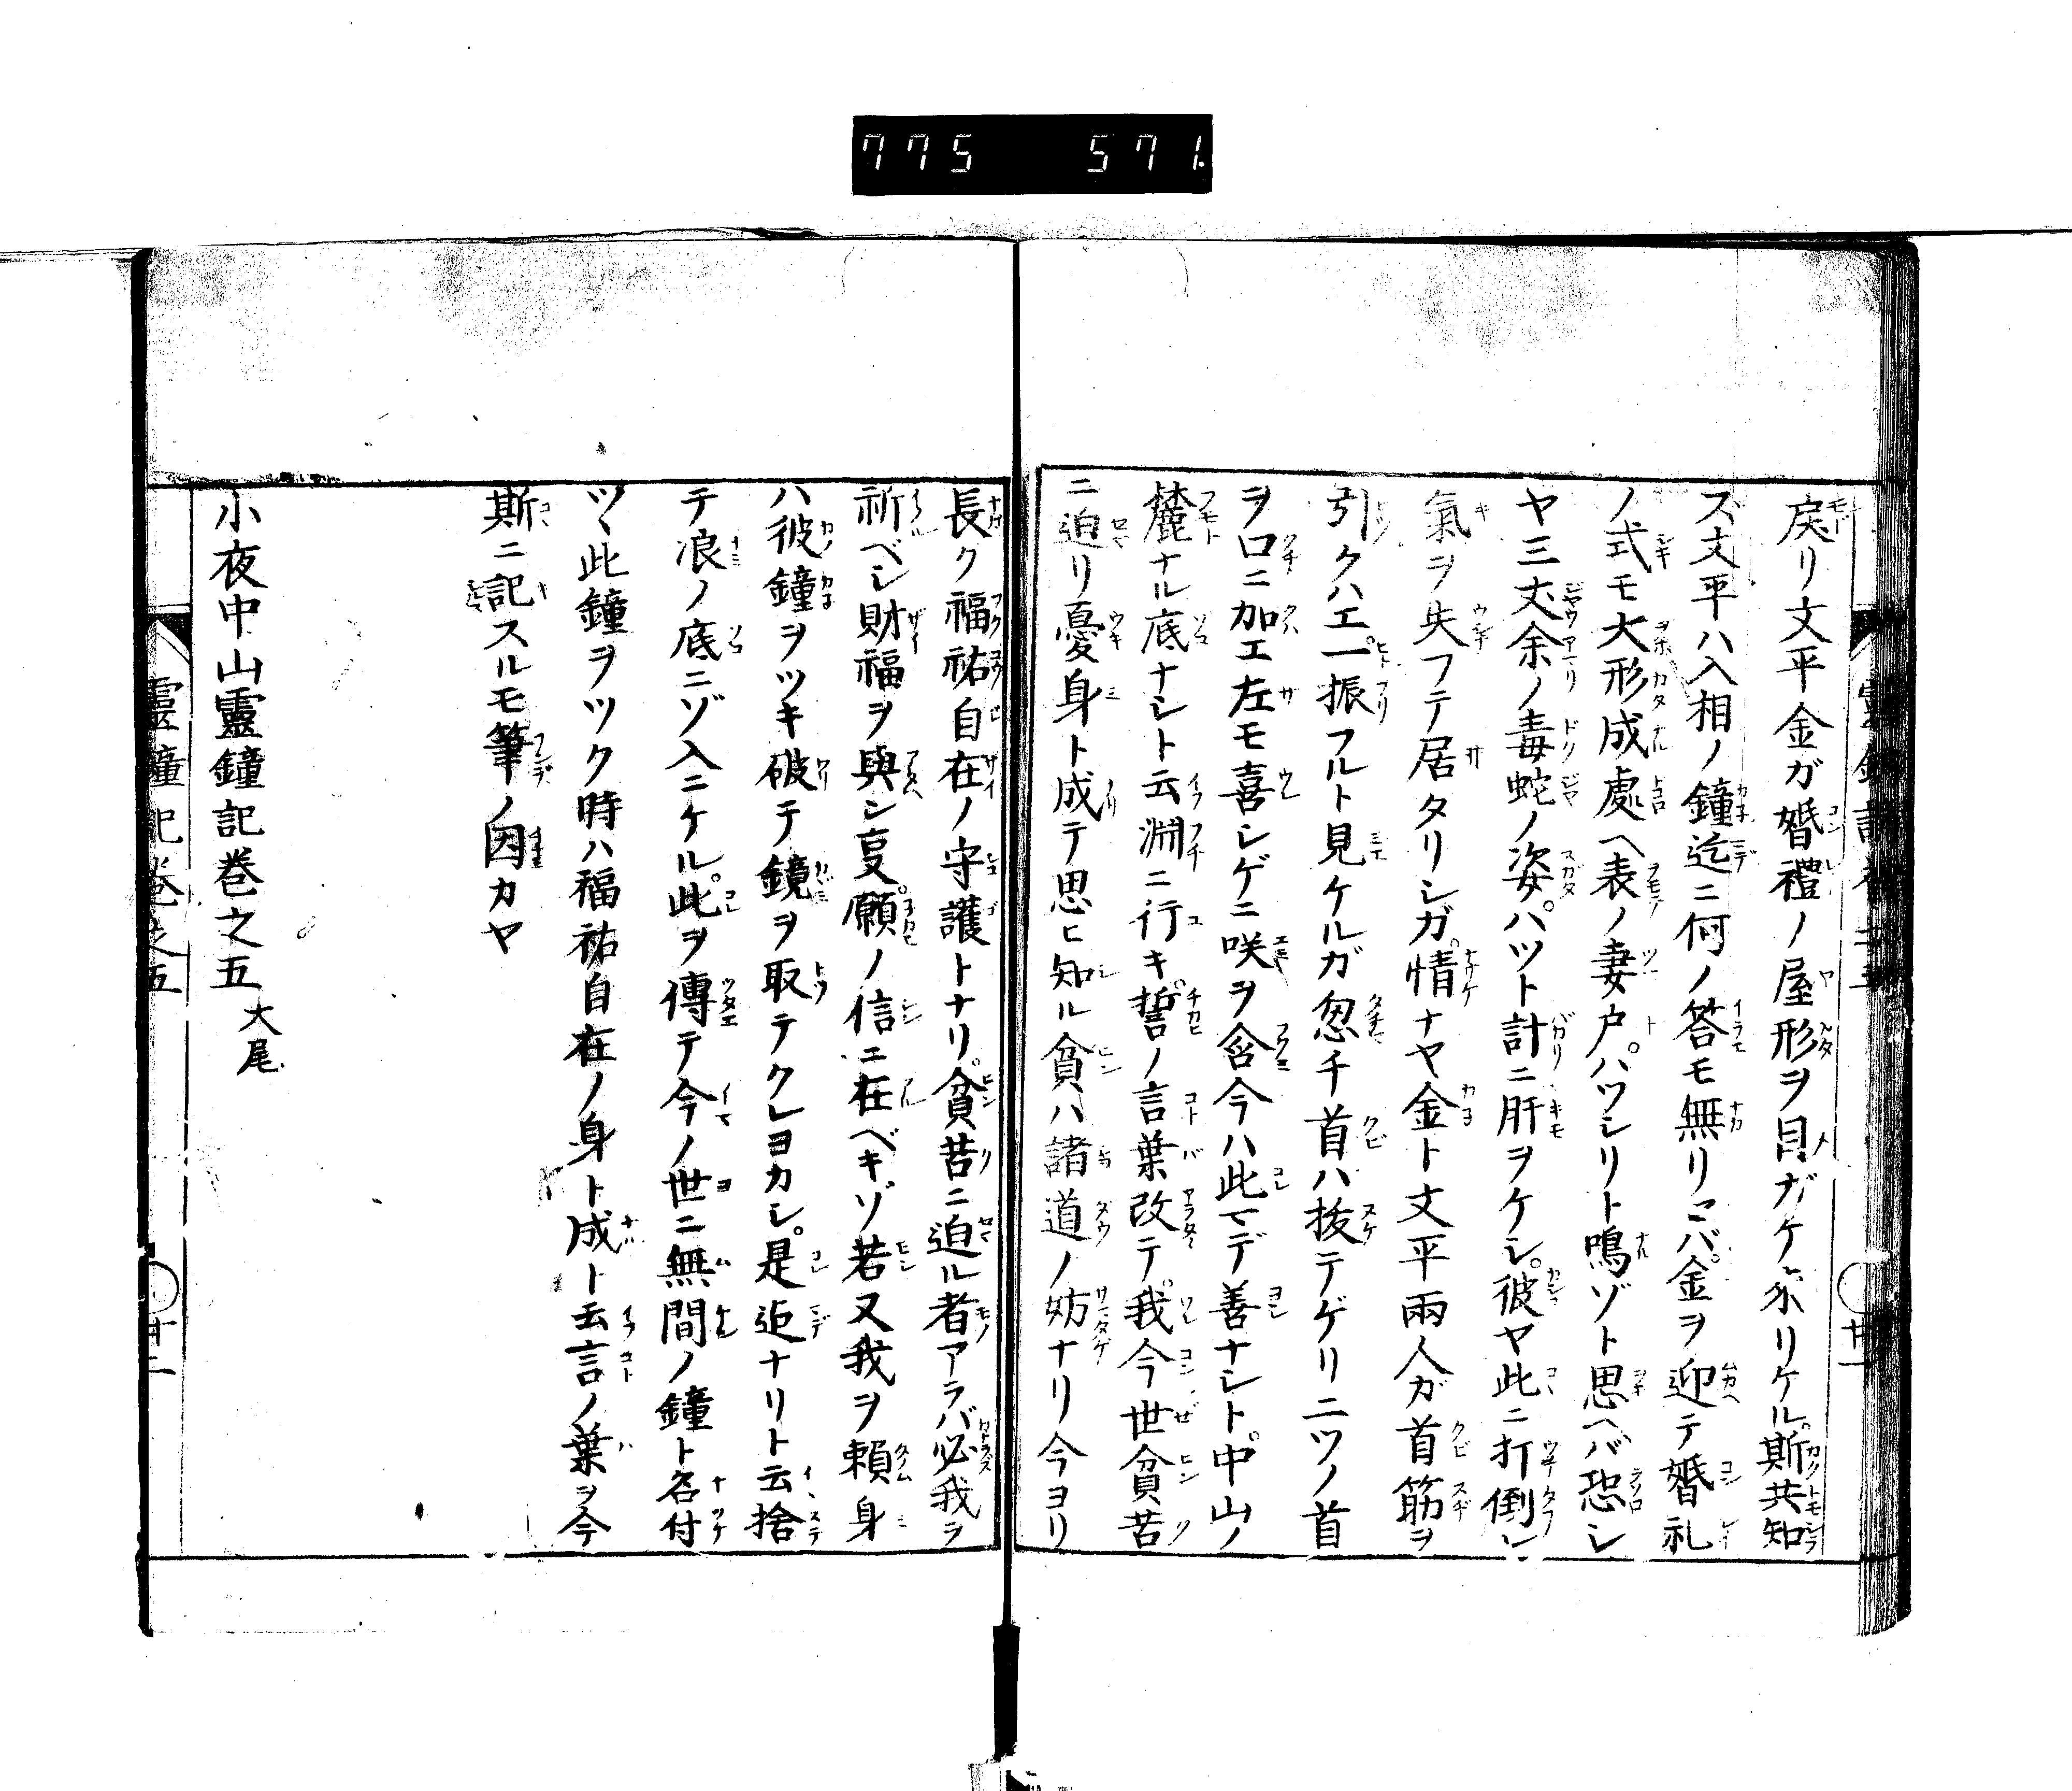 775 571.
戻リ文平金ガ婚禮ノ屋形ヲ目ガケ尓リケル斯共知
ズ文平ハ入相ノ鐘迄ニ何ノ答モ無リニバ金ヲ迎テ婚礼
ノ式モ大形成處ヘ表ノ妻戸パツシリト鳴ゾト思ヘバ恐シ
ヤ三丈余ノ毒蛇ノ姿パツト計ニ肝ヲケシ彼ヤ此ニ打倒レ
氣ヲ失フテ居タリシガ情ナヤ金ト文平兩人ガ首筋ヲ
引クハエ一振フルト見ケルガ忽チ首ハ抜テゲリ二ツノ首
ヲ口ニ加エ左モ喜シゲニ咲ヲ含今ハ此マデ善ナシト中山ノ
麓ナル底ナシト云淵ニ行キ誓ノ言葉改テ我今世貧苦
ニ迫リ憂身ト成テ思ヒ知ル貧ハ諸道ノ妨ナリ今ヨリ
長ク福祐自在ノ守護トナリ貧苦ニ迫ル者アラバ必我ヲ
祈ベシ財福ヲ與シ叓願ノ信ニ在ベキゾ若又我ヲ頼身
ハ彼鐘ヲツキ破テ鏡ヲ取テクレヨカシ是迠ナリト云捨
テ浪ノ底ニゾ入ニケル此ヲ傳テ今ノ世ニ無間ノ鐘ト名付
ツヽ此鐘ヲツク時ハ福祐自在ノ身ト成ト云言ノ葉ヲ今
斯ニ記スルモ筆ノ因カヤ
小夜中山靈鐘記巻之五 大尾
靈鐘記巻之五 廿二